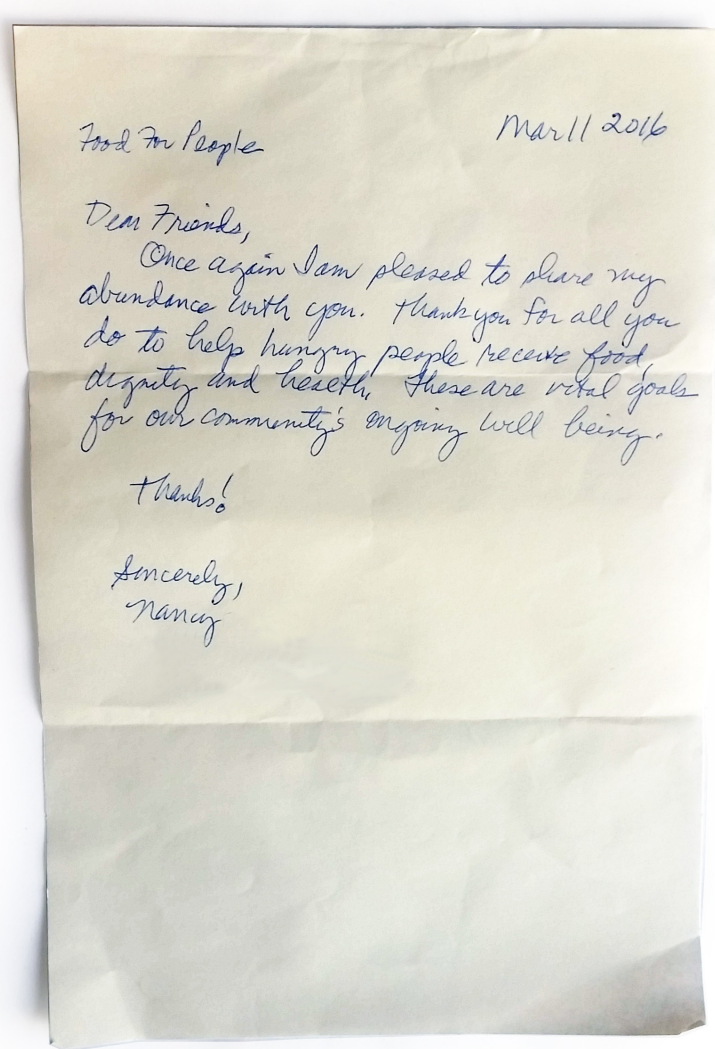 Mar 11 2016
Food For People
Dear Friends,
Once again I am pleased to share my
abundance with you. Thank you for all you
do to help hungry people receive food,
dignity and health. These are vital goals
for our community's ongoing well being.
Thanks!
Sincerely,
Nancy